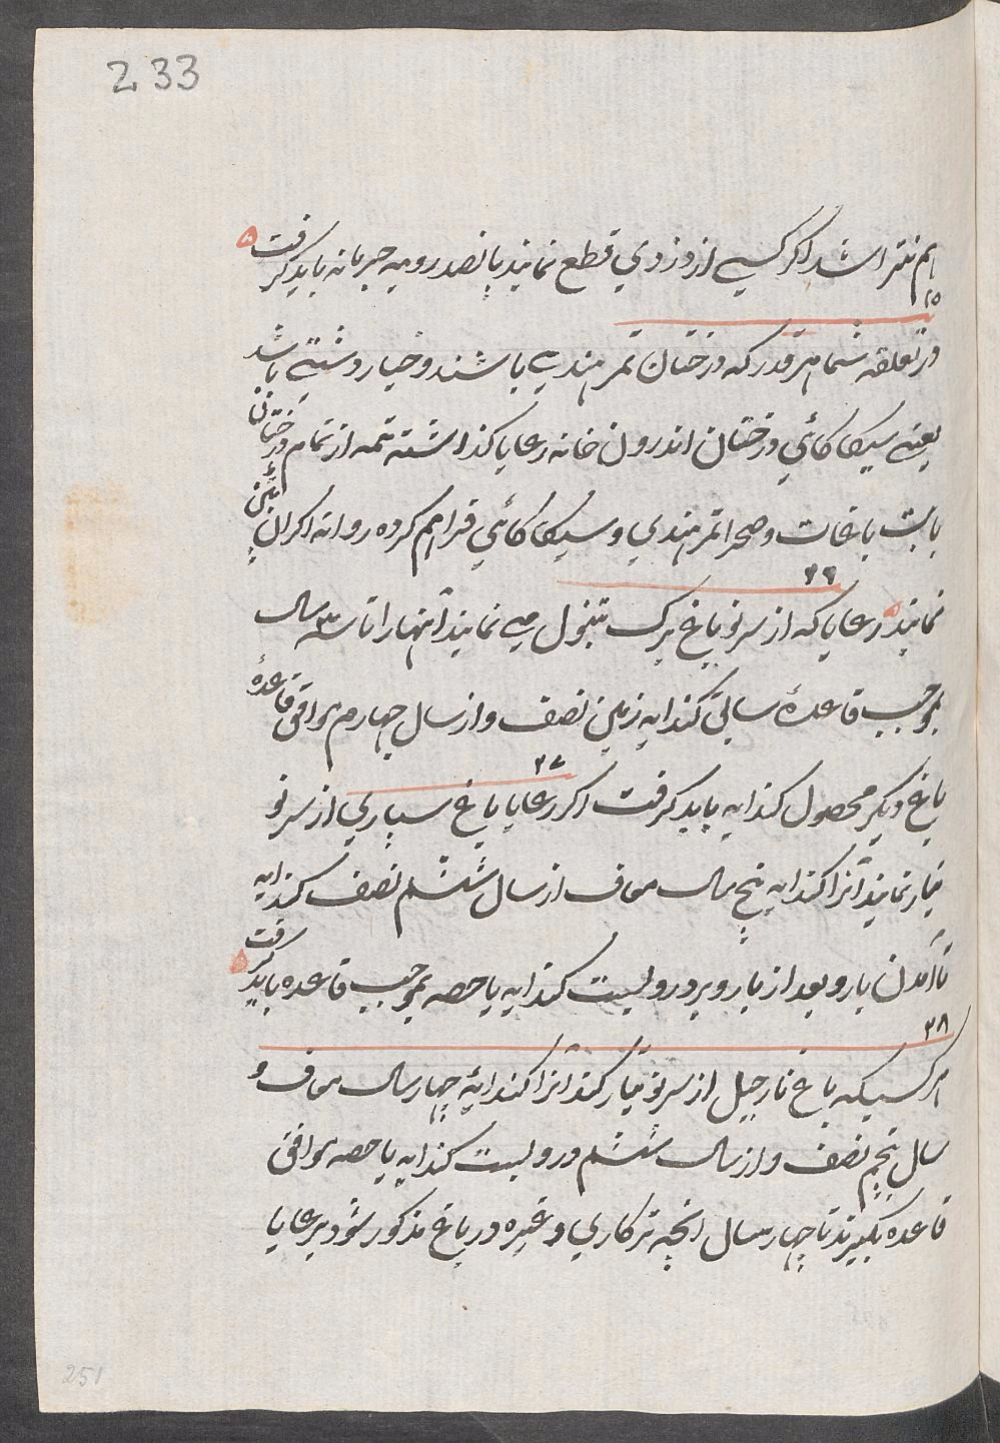 233
هم نتراشد اگر کسی از دزدي قطع نمایند پانصد روپیه جریمانه باید گرفت
۲۵
در تعلقه شما هر قدر که درختان تمر هندي باشند و خیار دشتي باشد
یعنے سیکا کائي درختان اندرون خانه رعایا گذاشته تتمه از تمام درختان
بابت باغات و صحرا تمر هندي و سیکا کائي فراهم کرده روانه
۲۶
نمایند رعایا که از سر نو باغ برگ تنبول مے نمایند آنهارا تا ۳ سال
بموجب قاعدهٔ سالي کندایه زمین نصف و از سال چهارم موافق قاعدهٔ
۲۷
باغ دیگر محصول کندایه باید گرفت اگر رعایا باغ سپاري از سر نو
تیار نمایند آنرا کندایه پنج سال معاف از سال ششم نصف کندایه
تا آمدن بار و بعد از بار و بر درولبست کندایه یا حصه بموجب قاعده باید گرفت
۲۸
هر کسیکه باغ نارجیل از سر نو تیار کند آنرا کندایهٔ چهار سال معاف و
سال پنجم نصف و از سال ششم درولبست کندایه یا حصه موافق
قاعده بگیرند تا چهار سال انچه ترکاري و غیره در باغ مذکور شود برعایا
251